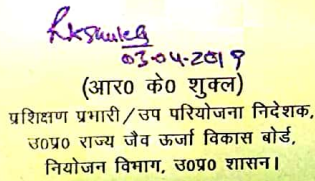 03-04-2019
(आर० के० शुक्ल)
प्रशिक्षण प्रभारी/उप परियोजना निदेशक,
उ०प्र० राज्य जैव ऊर्जा विकास बोर्ड,
नियोजन विभाग, उ०प्र० शासन।